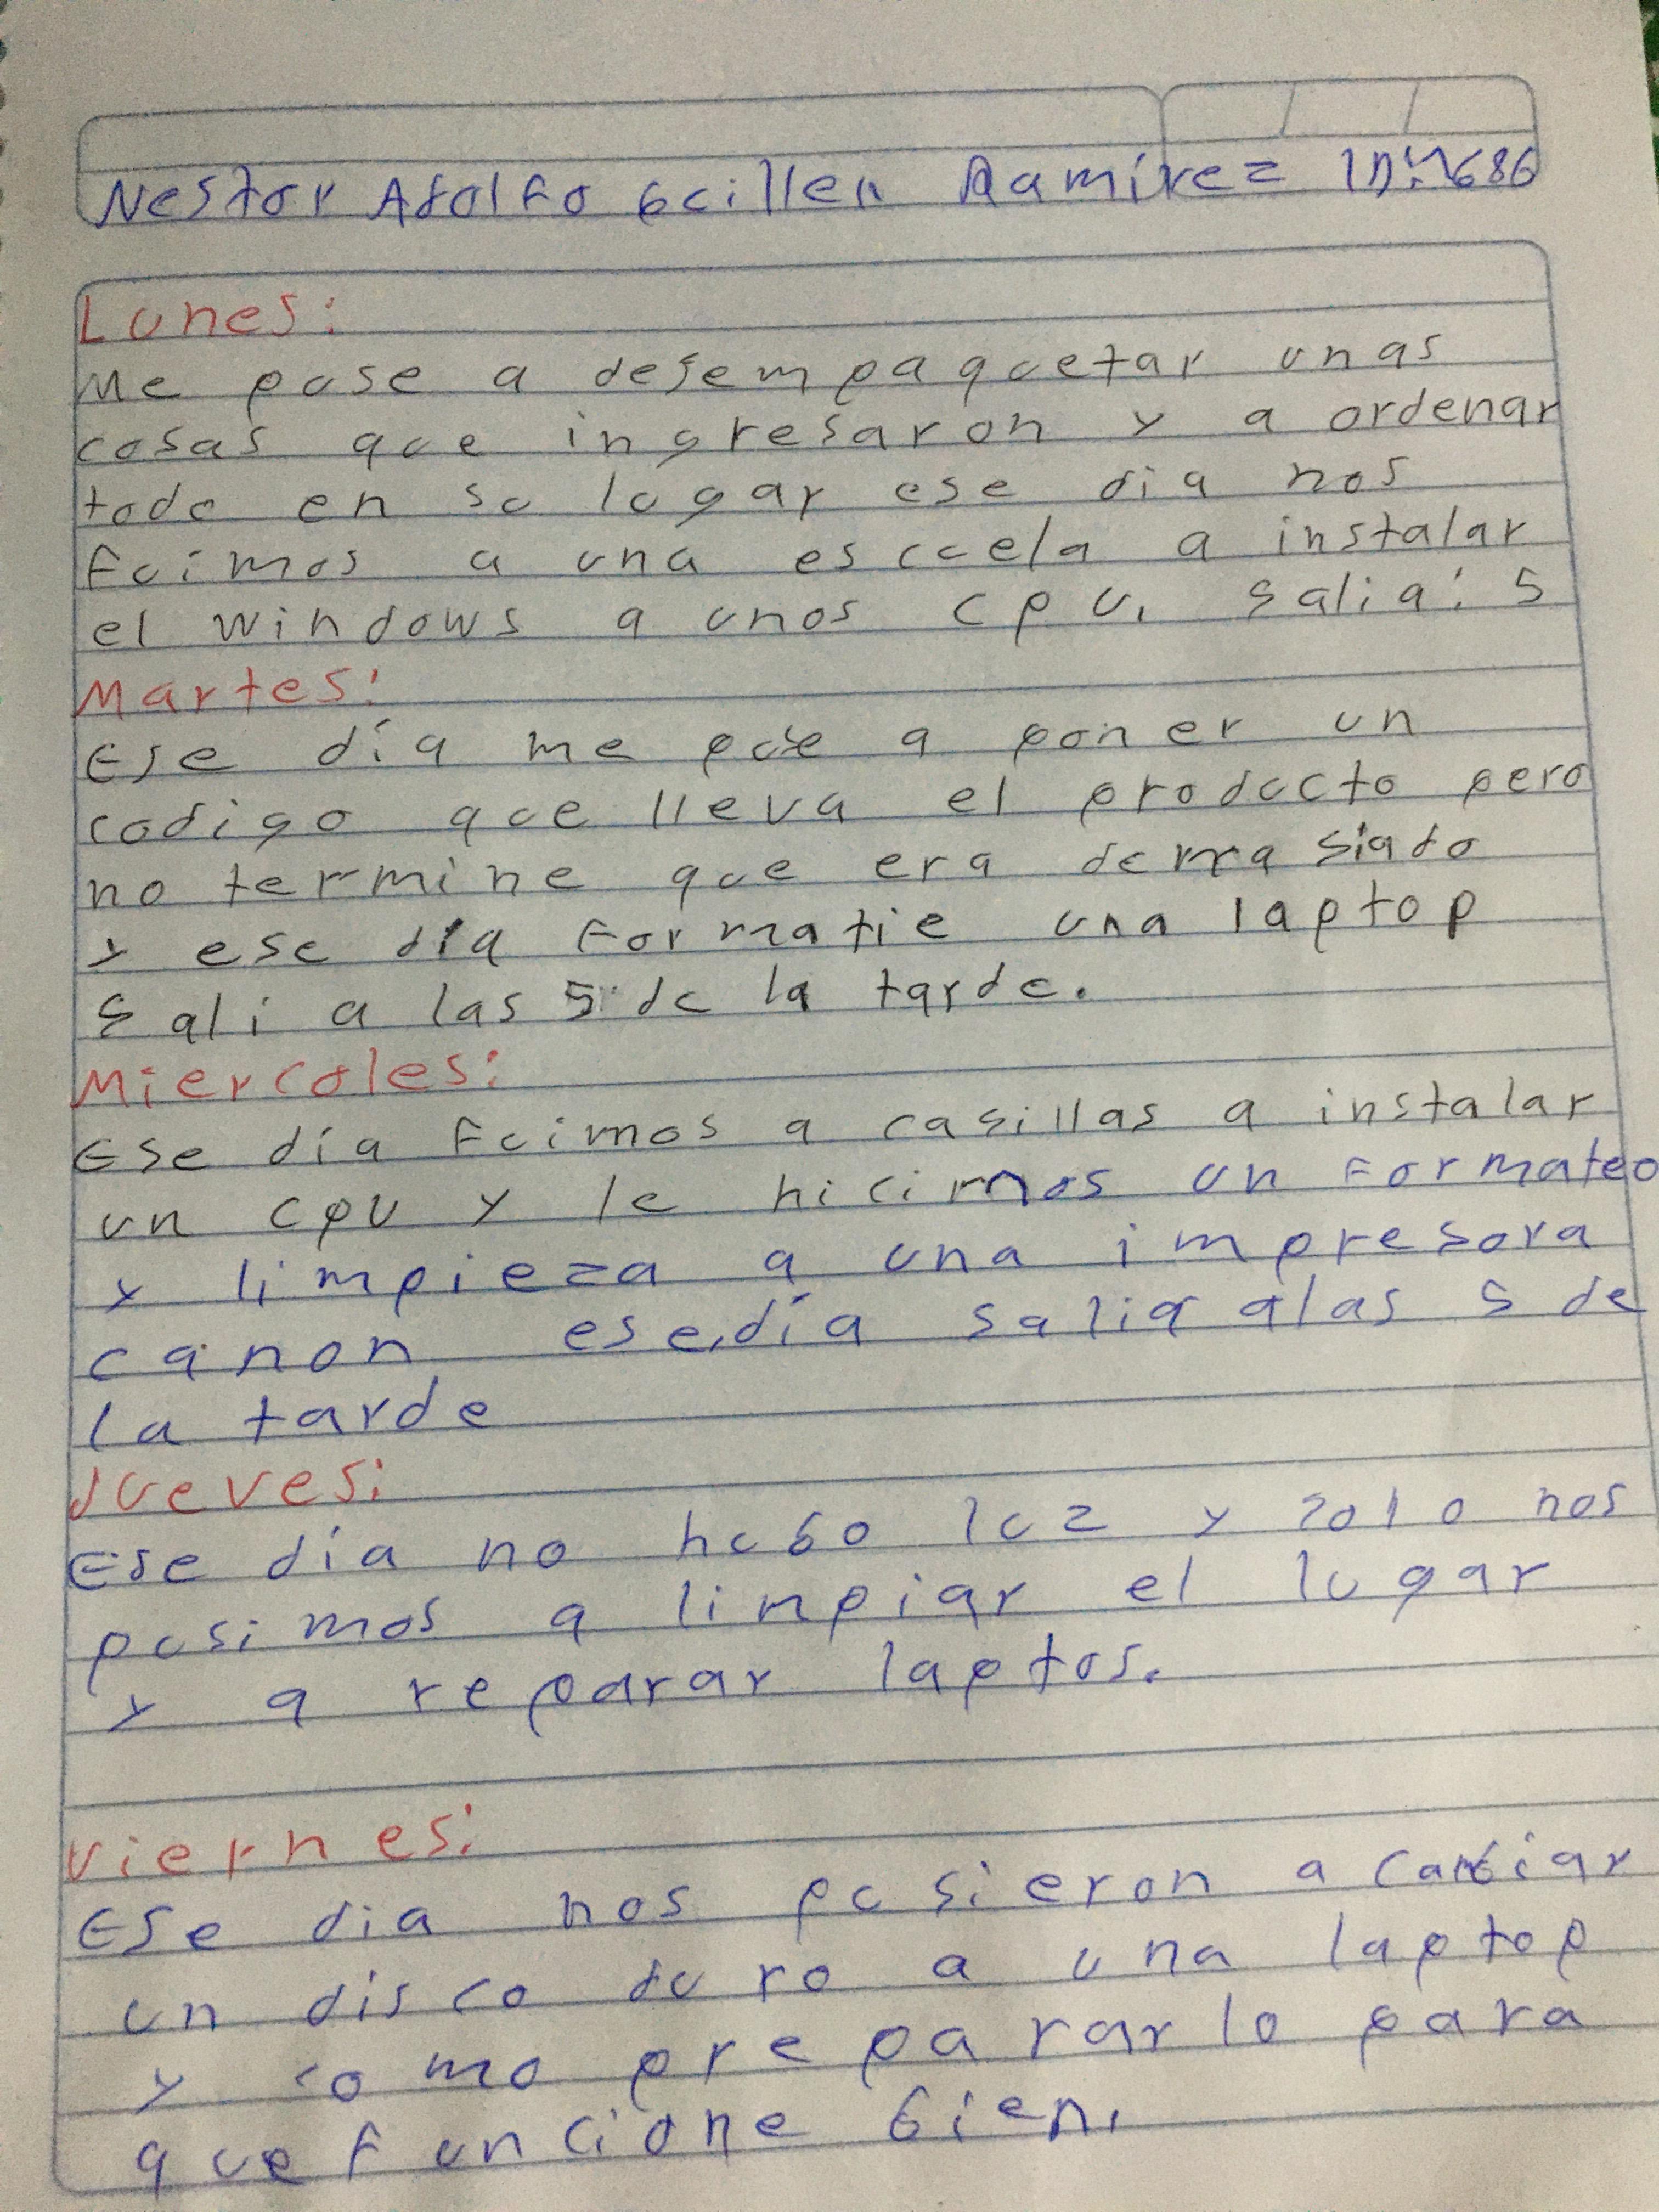 Nestor Adolfo Guillen Ramirez ID:
Lunes:
Me puse a desempaquetar unas
cosas que ingresaron y a ordenar
todo en su lugar ese dia nos
fuimos a una escuela a instalar
el windows a unos cpu. salia: 5
Martes:
Ese día me puse a poner un
codigo que lleva el producto pero
no termine que era demasiado
y ese día formatie una laptop
sali a las 5 de la tarde.
Miercoles:
Ese día fuimos a casillas a instalar
un cpu y le hicimos un formateo
y limpieza a una impresora
canon ese día salia alas 5 de
la tarde
Jueves:
Ese día no hubo luz y solo nos
pusimos a linpiar el lugar
y a reparar laptos.
Viernes:
Ese dia nos pusieron a cambiar
un disco duro a una laptop
y como prepararlo para
que funcione bien.